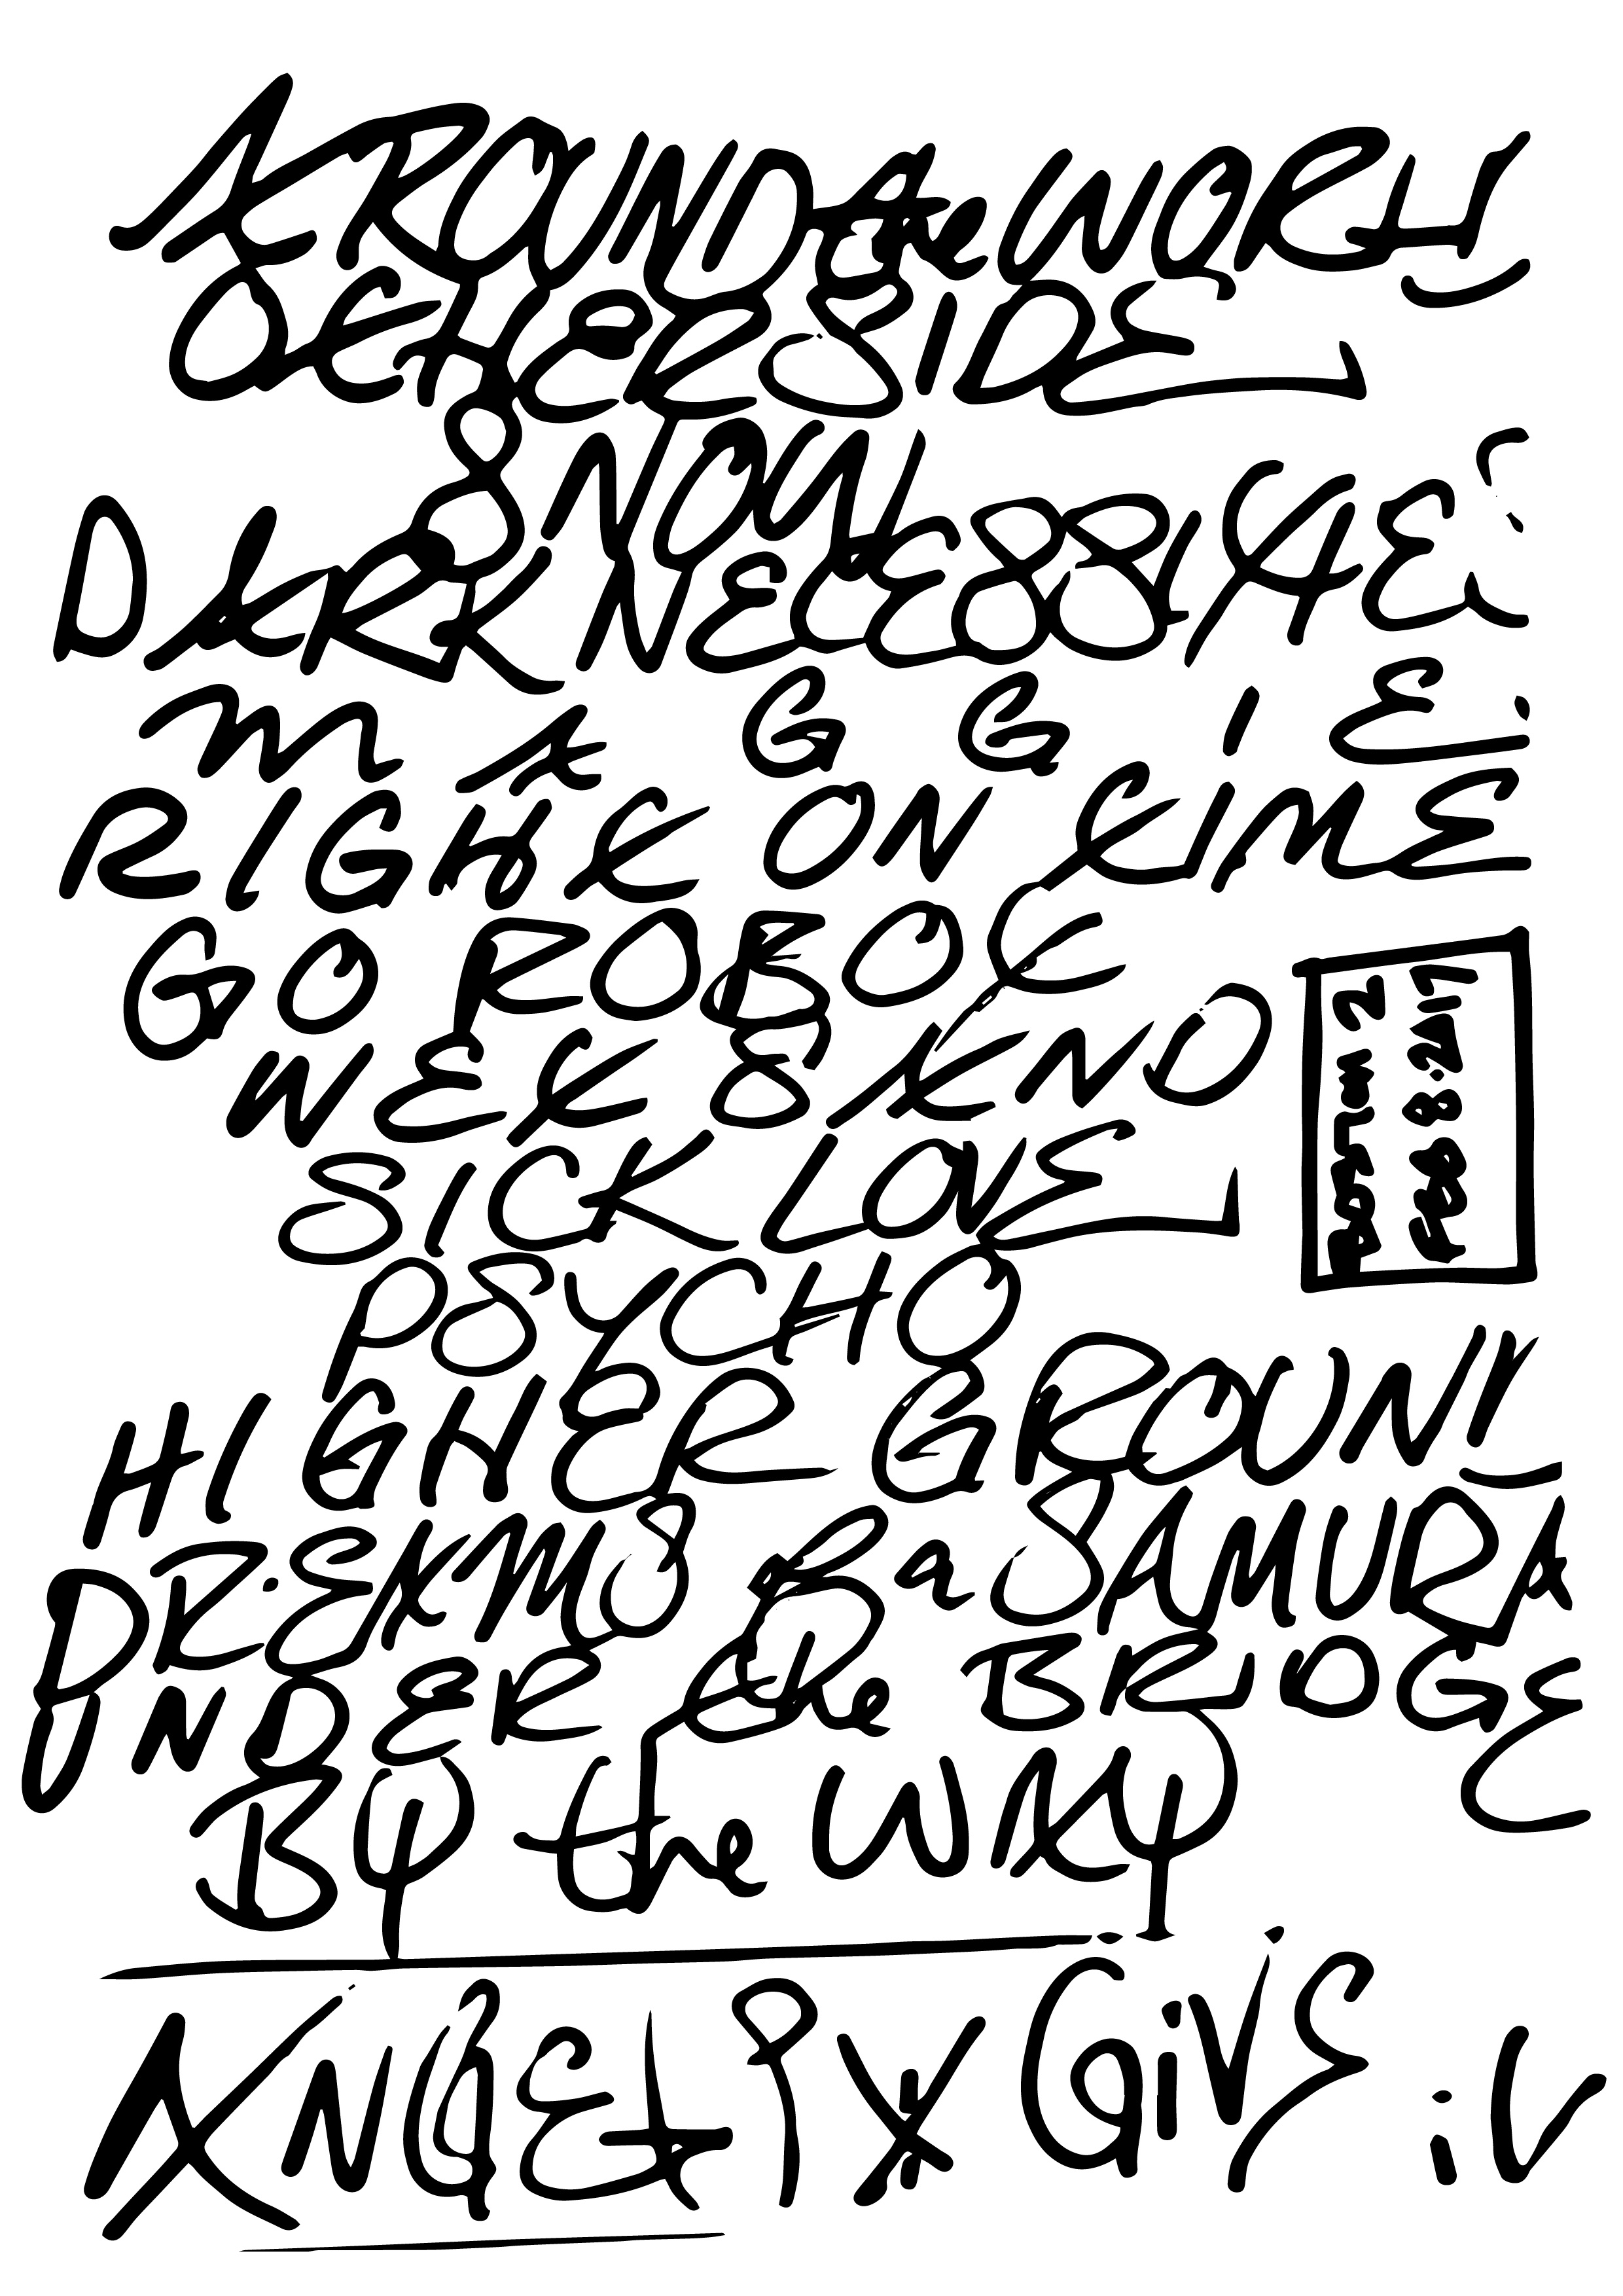 AROUND the WORLD
OtHERSIDE
SNOW
DARK NECESSitiES
MAGGIE
RIGHT ON TIME
GO ROBOT
WET SAND
SICK LOVE
PSYCHO
HIGHER GROUND
DREAMS of a SAMURAI
UNDER the BRIDGE
BY the WAY
GiVE iT